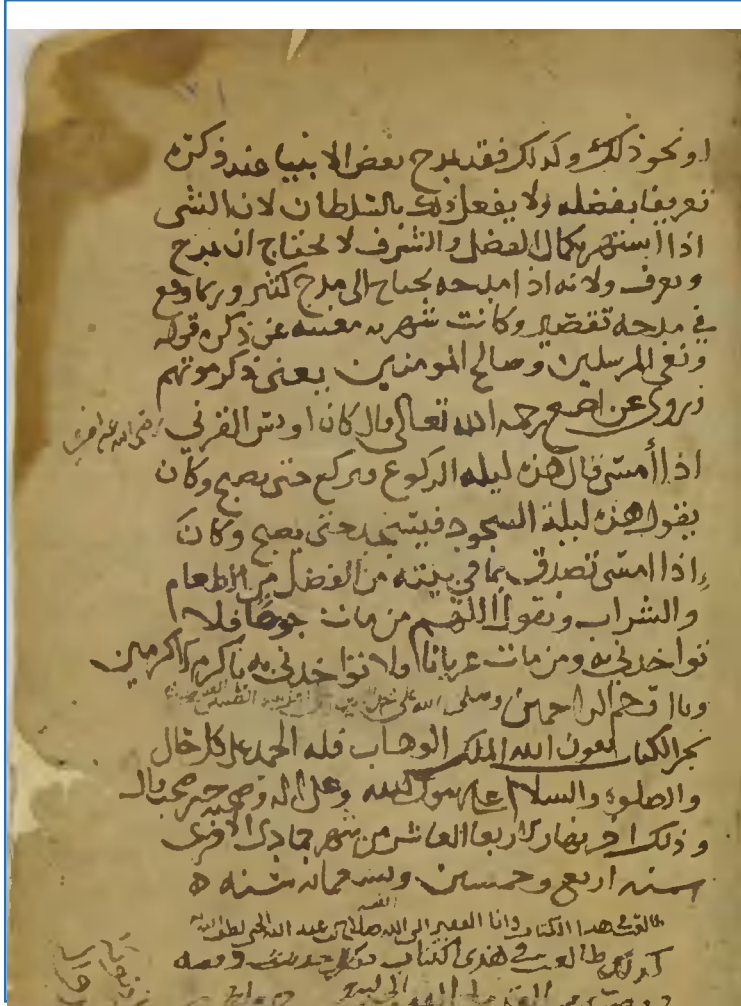 او نحو ذلك وكذلك فقد يمدح بعض الانبيا عند ذكره
تعريفا بفضله ولا يفعل ذلك بالسلطان لان الشى
اذا اشتهر بكمال الفضل والشرف لا يحتاج ان يمدح
ويعرف ولانه اذا مدحه يحتاج الى مدح كثير وربما وقع
في مدحه تقصير وكانت شهرته مغنيه عن ذكره قوله
ونعى المرسلين وصالح المومنين يعنى ذكر موتهم
وروى عن اصبغ رحمه الله تعالى قال كان اويس القرني رضى الله عنه
اذا أمسى قال هذه ليلة الركوع فيركع حتى يصبح وكان
يقول هذه ليلة السجود فيسجد حتى يصبح وكان
اذا امسى تصدق بما في بيته من الفضل من الطعام
والشراب ويقول اللهم من مات جوعا فلا
تواخدنى به ومن مات عريانا ولا تواخدنى به ياكرم الاكرمين
ويا ارحم الراحمين وصلى الله على
نجز الكتاب بعون الله الملك الوهاب فله الحمد على كل حال
والصلوة والسلام على رسول الله وعلى اله وصحبه خير صحب وال
وذلك اخر نهار الاربعا العاشر من شهر جمادى الاخرى
سنه اربع وخمسين وتسعمائه سنه
طالع في هدا الكتاب وانا الفقير الى الله صلاح بن عبد الله
طالعت في هدى الكتاب